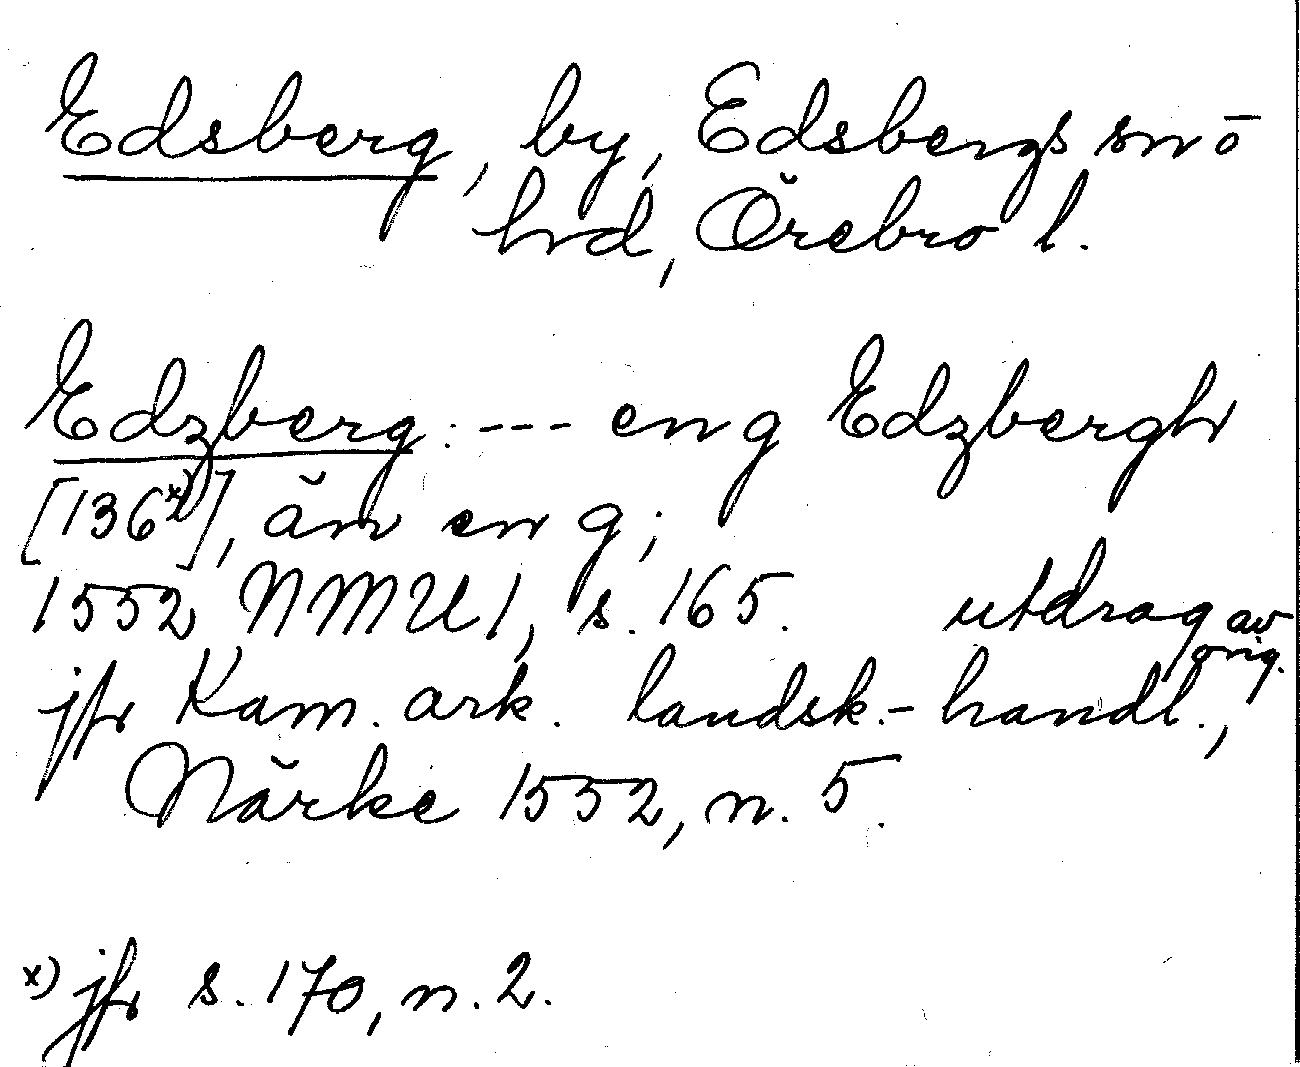 Edsberg, by, Edsbergs sn o
hd, Örebro l.
Edzberg: --- eng Edzbergh
[136x)], äm eng;
1552 NMU 1, s. 165. utdrag av orig.
jfr Kam. ark. landsk.-handl.,
Närke 1552, n. 5.
x) jfr s. 170, n. 2.